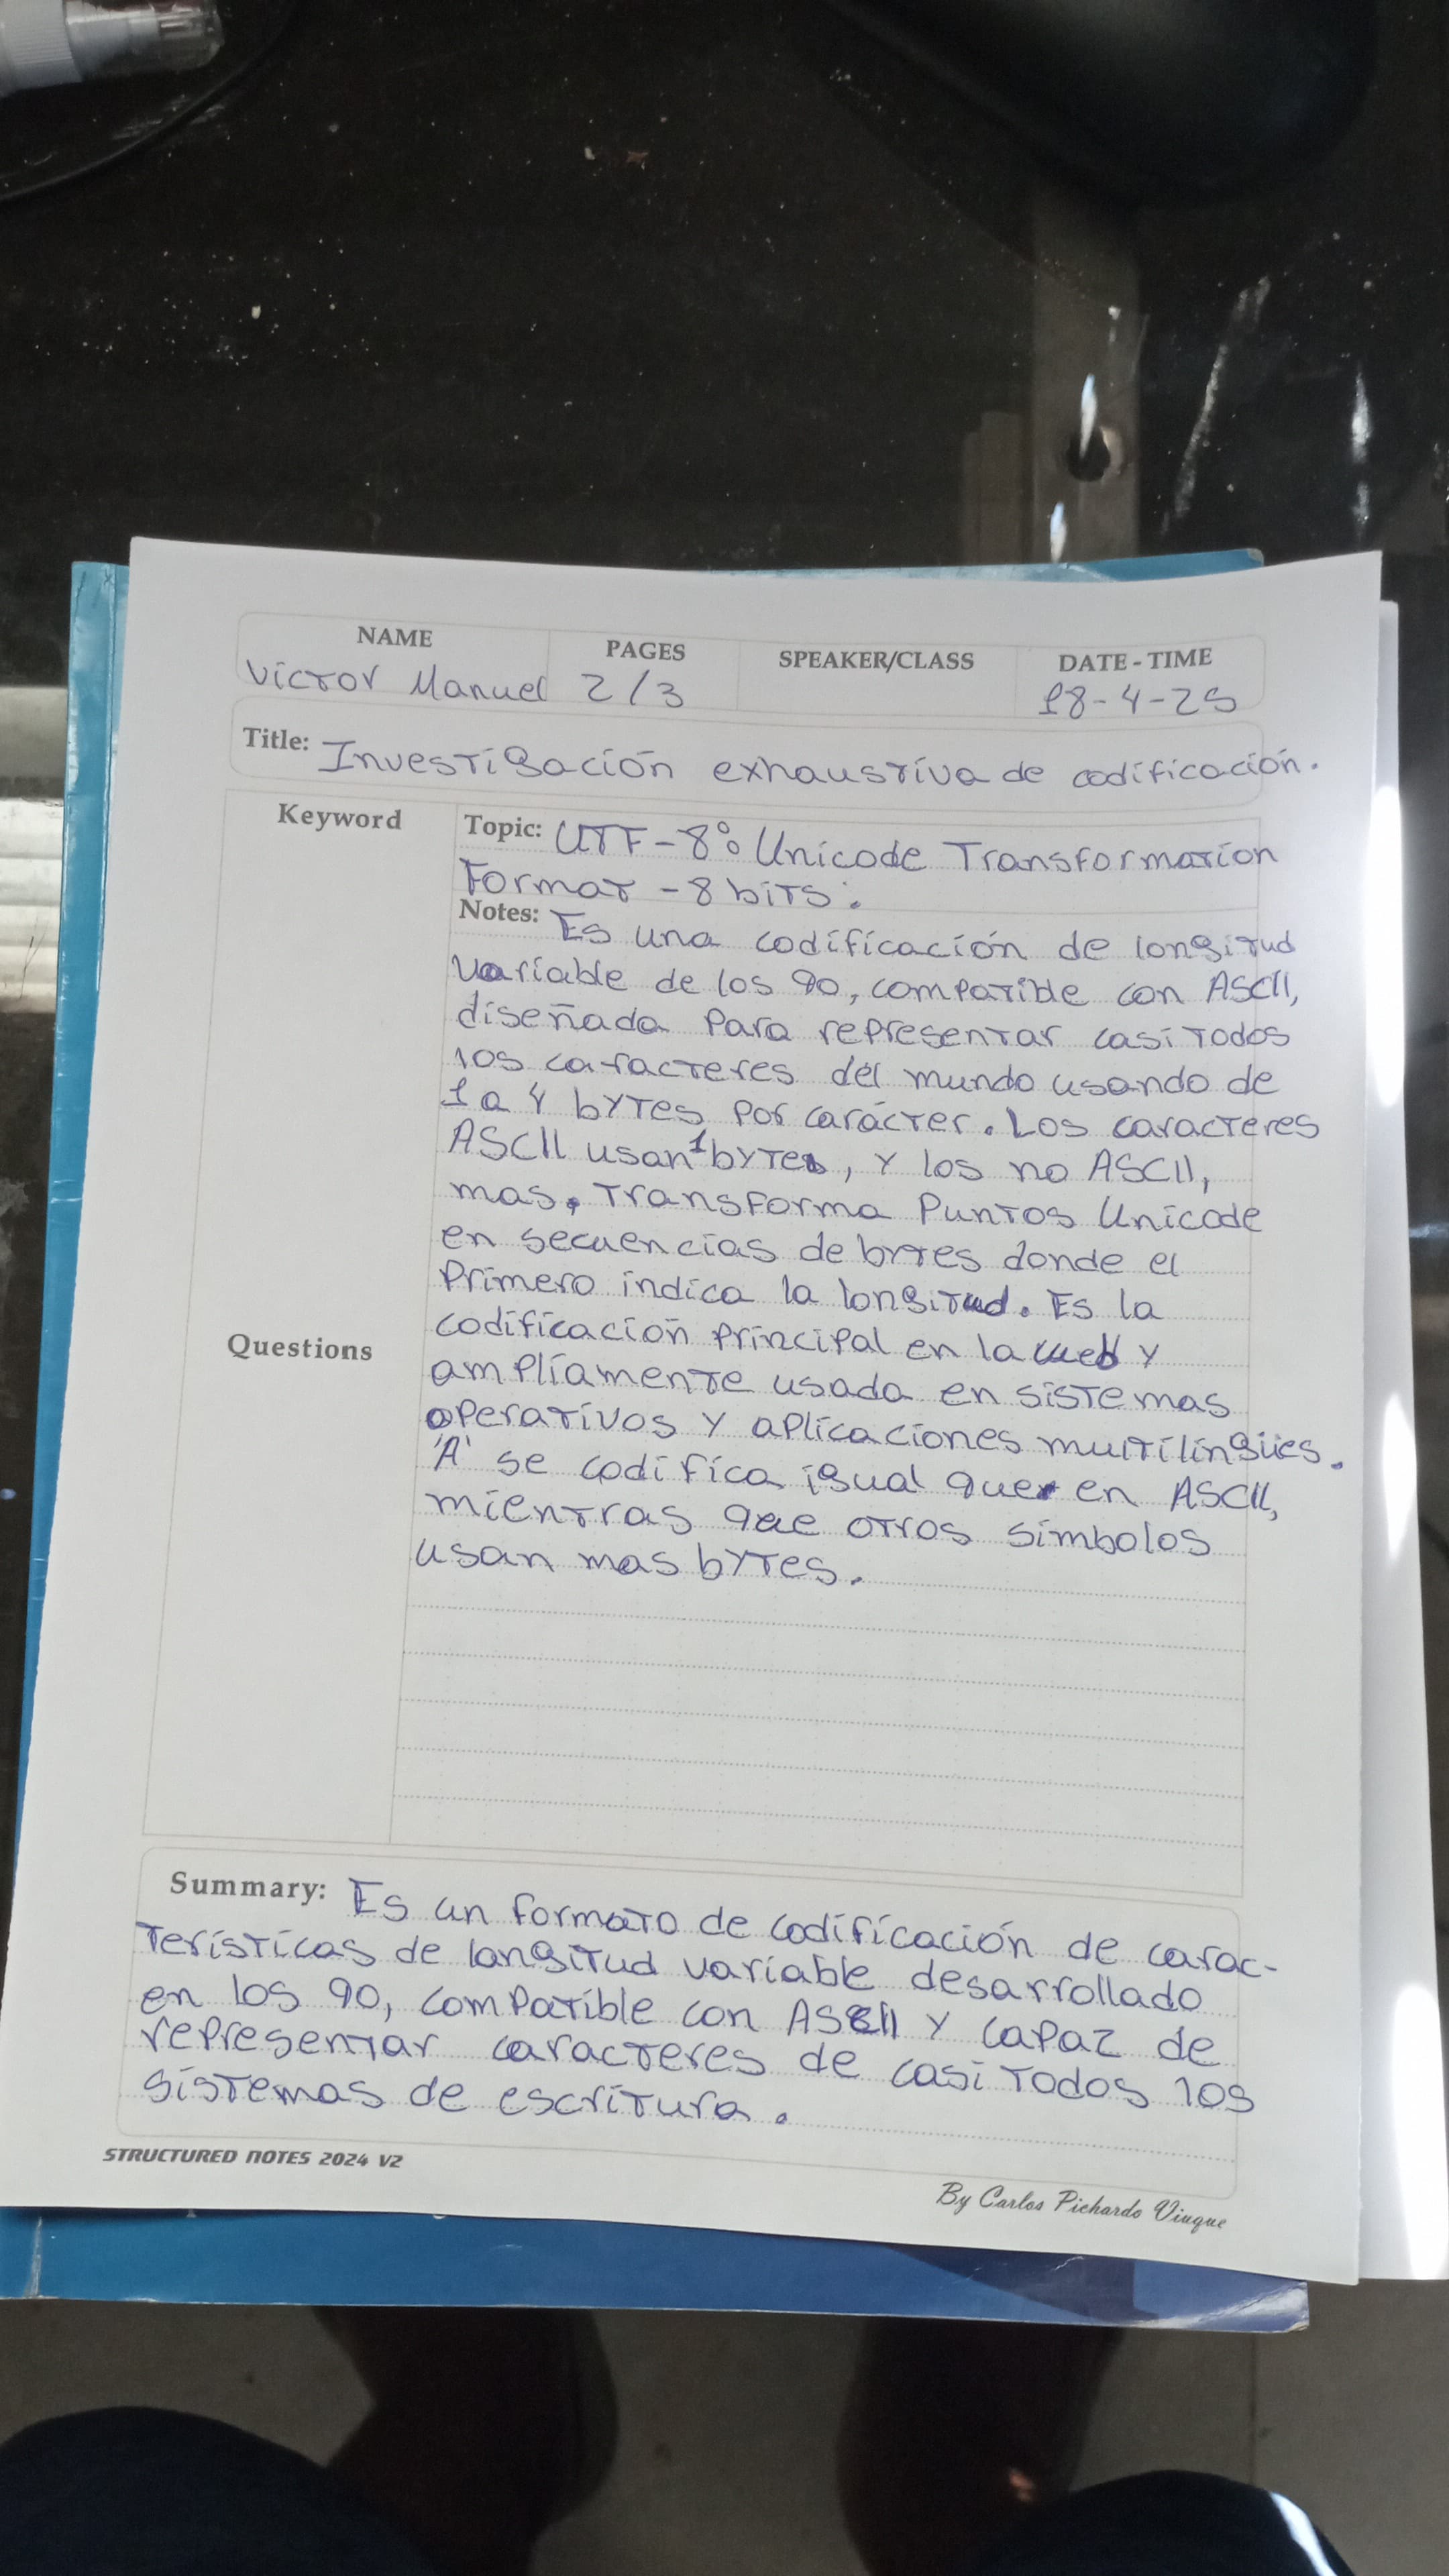 NAME PAGES SPEAKER/CLASS DATE-TIME
Victor Manuel 2/3 18-4-25
Title: Investigación exhaustiva de codificación.
Keyword
Topic: UTF-8: Unicode Transformation
Format -8 bits.
Notes: Es una codificación de longitud
variable de los 90, compatible con ASCII,
diseñada para representar casi todos
los caracteres del mundo usando de
1 a 4 bytes por carácter. Los caracteres
ASCII usan 1 byte, y los no ASCII,
mas. Transforma Puntos Unicode
en secuencias de bytes donde el
Primero indica la longitud. Es la
Questions
codificación principal en la web y
ampliamente usada en sistemas
operativos y aplicaciones multilingües.
'A' se codifica igual que en ASCII,
mientras que otros símbolos
usan mas bytes.
Summary: Es un formato de codificación de carac-
terísticas de longitud variable desarrollado
en los 90, compatible con ASCII y capaz de
representar caracteres de casi todos los
sistemas de escritura.
STRUCTURED NOTES 2024 V2
By Carlos Pichardo Viuque